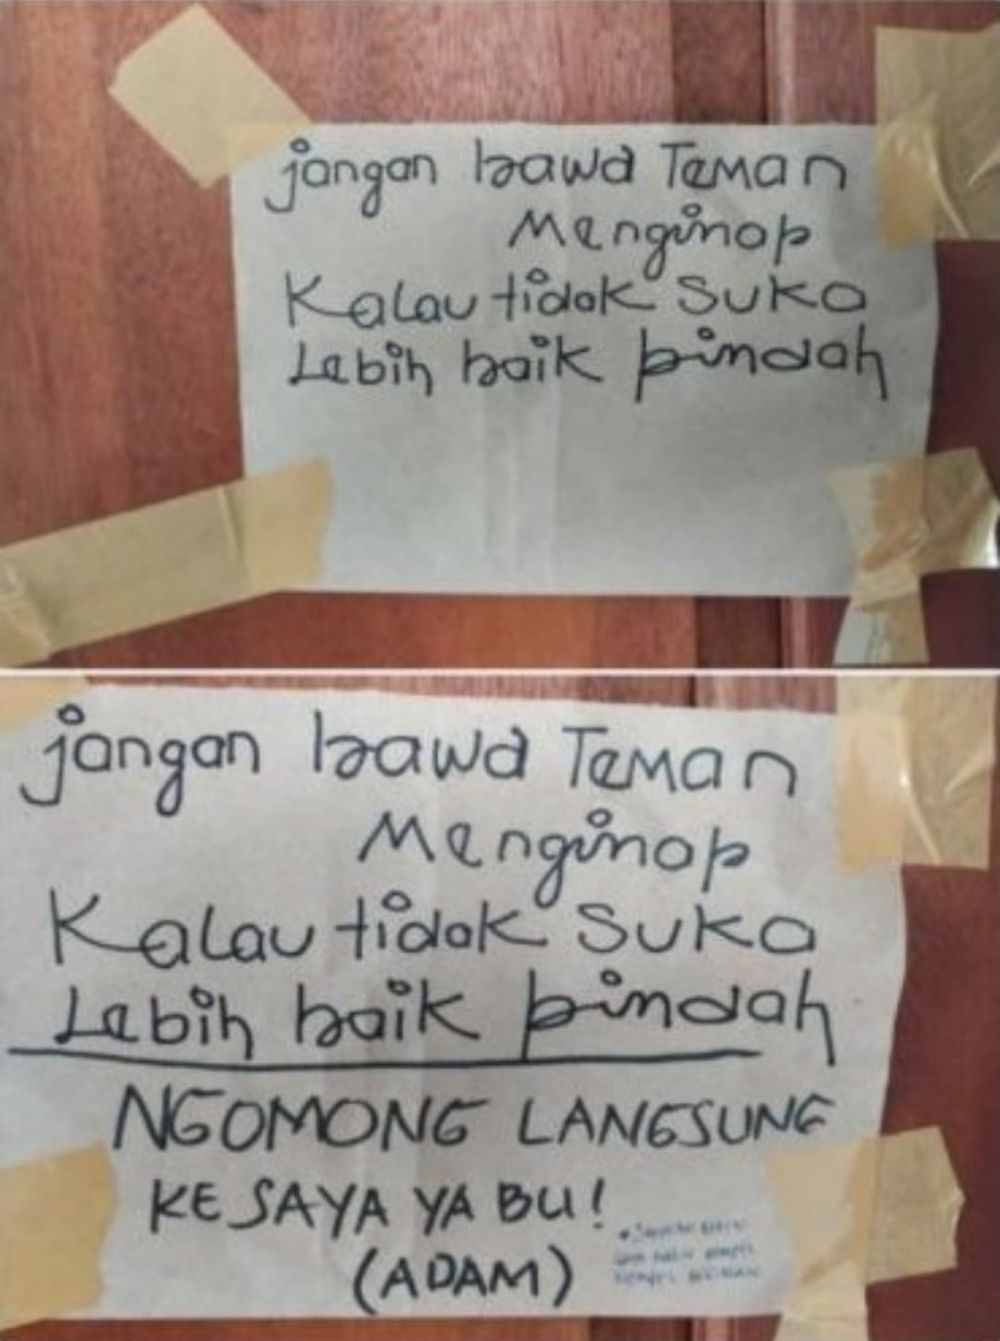 jangan bawa Teman
Menginap
Kalau tidak suka
Lebih baik pindah
jangan bawa Teman
Menginap
Kalau tidak suka
Lebih baik pindah
NGOMONG LANGSUNG
KE SAYA YA BU!
(ADAM)